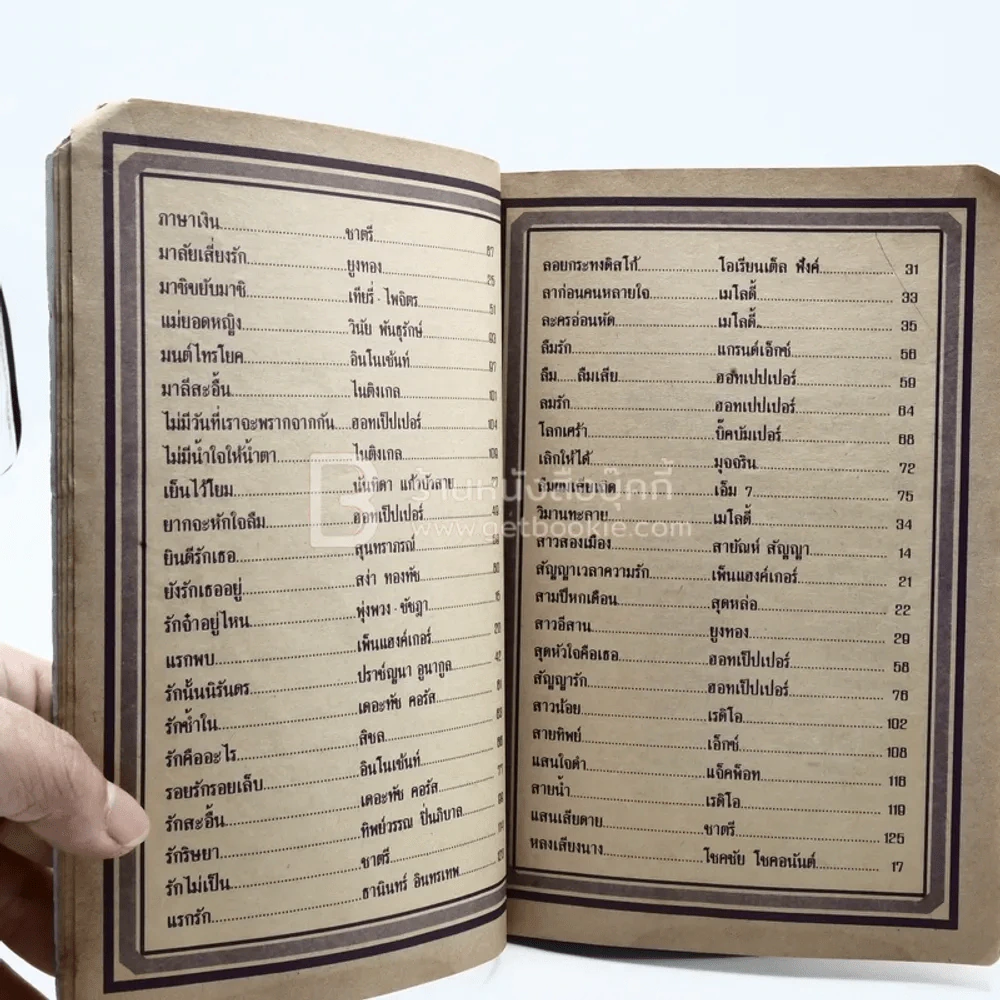 ภาษาเงิน........ชาตรี........87
มาลัยเสี่ยงรัก........ยูงทอง........25
มาซิขยับมาซิ........เทียรี่ - ไพจิตร........51
แม่ยอดหญิง........วินัย พันธุรักษ์........93
มนต์ไทรโยค........อินโนเซ้นท์........97
มาลีสะอื้น........ไนติงเกล........101
ไม่มีวันที่เราจะพรากจากกัน....ฮอทเป็ปเปอร์........104
ไม่มีน้ำใจให้น้ำตา........ไนติงเกล........109
เย็นไว้โยม........นันทิดา แก้วบัวสาย........7
ยากจะหักใจลืม........ฮอทเป็ปเปอร์........49
ยินดีรักเธอ........สุนทราภรณ์........54
ยังรักเธออยู่........สง่า ทองทัช........80
รักจ๋าอยู่ไหน........พุ่งพวง - ชัชฎา........15
แรกพบ........เพ็นแฮงค์เกอร์........20
รักนั้นนิรันดร........ปราชญ์ญนา อูนากูล........42
รักช้ำใน........เดอะทัช คอรัส........81
รักคืออะไร........สิชล........83
รอยรักรอยเล็บ........อินโนเซ้นท์........86
รักสะอื้น........เดอะทัช คอรัส........77
รักริษยา........ทิพย์วรรณ ปิ่นภิบาล
รักไม่เป็น........ชาตรี
แรกรัก........ธานินทร์ อินทรเทพ
ลอยกระทงดิสโก้........โอเรียนเต็ล ฟังค์........31
ลาก่อนคนหลายใจ........เมโลดี้........33
ละครอ่อนหัด........เมโลดี้........35
ลืมรัก........แกรนด์เอ็กซ์........56
ลืม....ลืมเสีย........ฮอทเปปเปอร์........59
ลมรัก........ฮอทเปปเปอร์........64
โลกเศร้า........บิ๊คบัมเปอร์........68
เลิกให้ได้........มุจจริน........72
ลืมผมเสียเถิด........เอ็ม 7........75
วิมานทะลาย........เมโลดี้........34
สาวสองเมือง........สายัณห์ สัญญา........14
สัญญาเวลาความรัก........เพ็นแฮงค์เกอร์........21
สามปีหกเดือน........สุดหล่อ........22
สาวอีสาน........ยูงทอง........29
สุดหัวใจคือเธอ........ฮอทเป็ปเปอร์........58
สัญญารัก........ฮอทเป็ปเปอร์........76
สาวน้อย........เรดิโอ........102
สายทิพย์........เอ็กซ์........108
แสนใจดำ........แจ็คพ็อท........118
สายน้ำ........เรดิโอ........119
แสนเสียดาย........ชาตรี........125
หลงเสียงนาง........โชคชัย โชคอนันต์........17
ร้านหนังสือบุ๊กกี้
www.getbookie.com